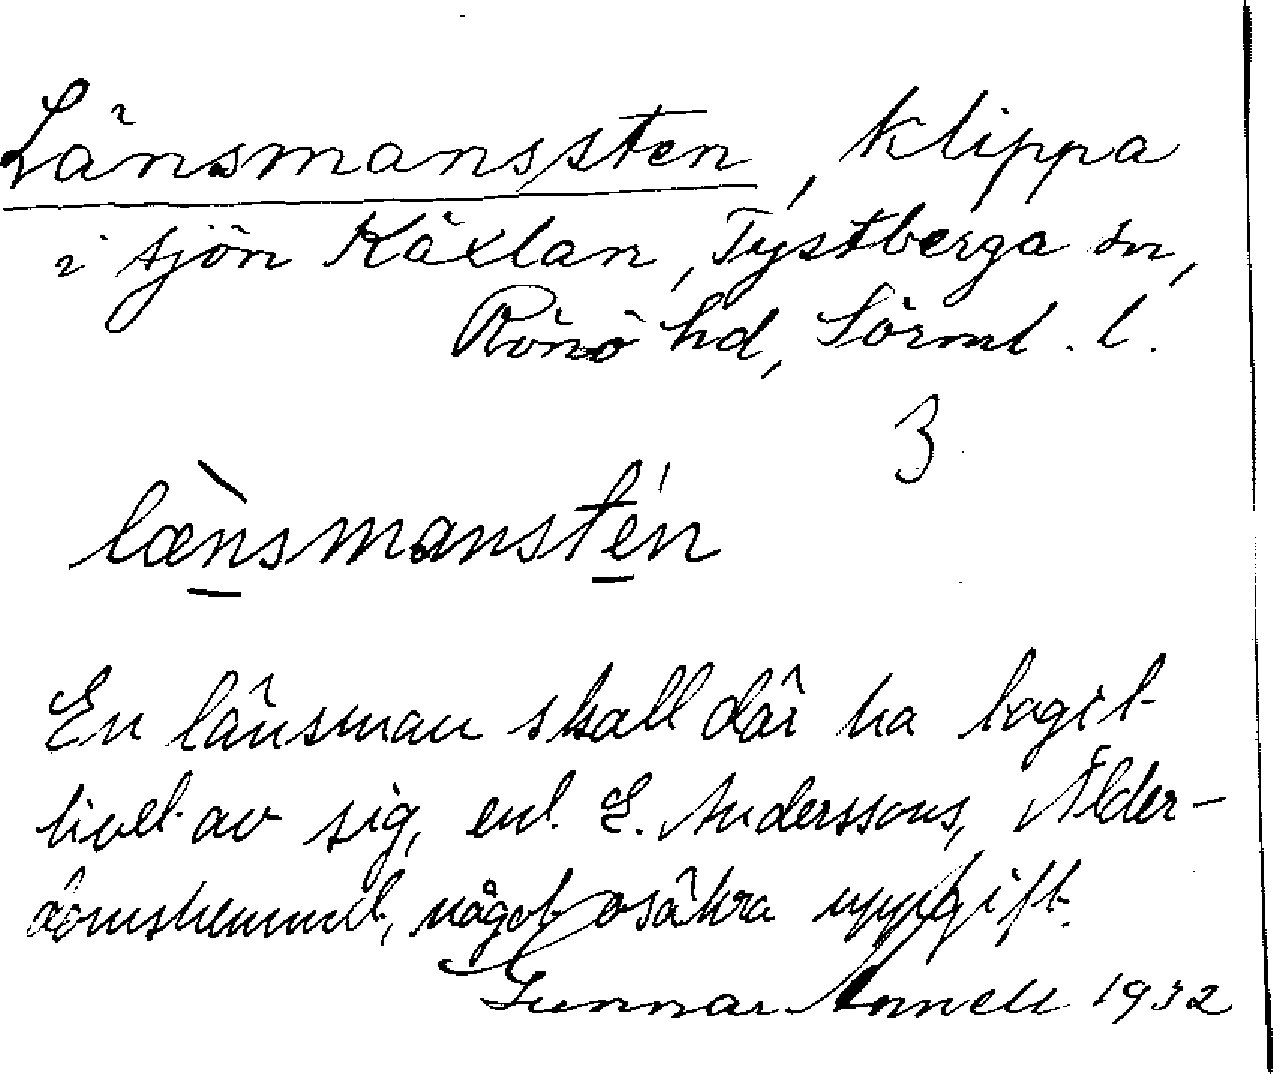 Länsmanssten, klippa
i sjön Käxlan, Tystberga sn,
Rönö hd, Sörml. l.
3
lænsmanstén
En länsman skall där ha tagit
livet av sig, enl. E. Anderssons, Ålder-
domshemmet, något osäkra uppgift.
Gunnar Annell 1932